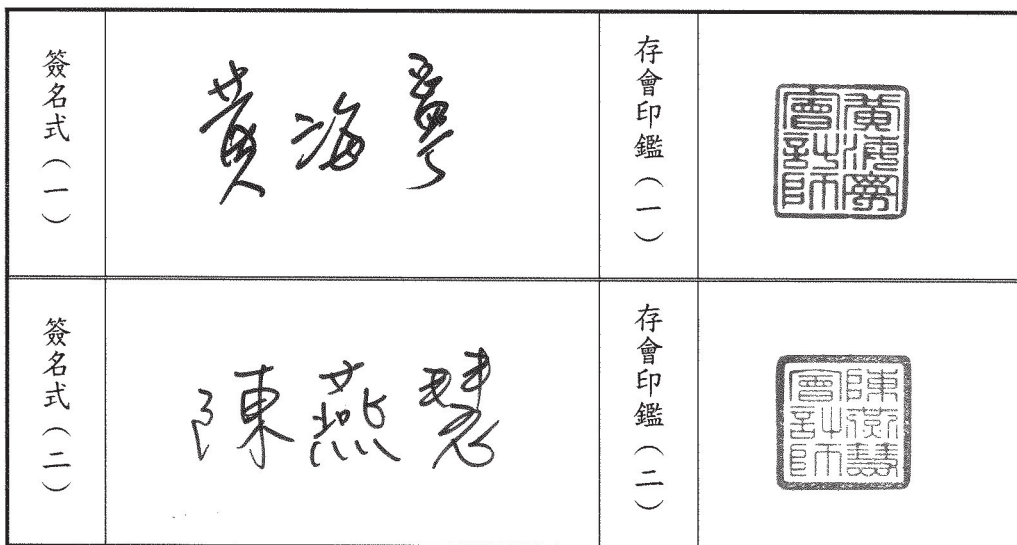 簽名式(一)
黃海寧
存會印鑑(一)
黃海寧會計師
簽名式(二)
陳燕慧
存會印鑑(二)
陳燕慧會計師